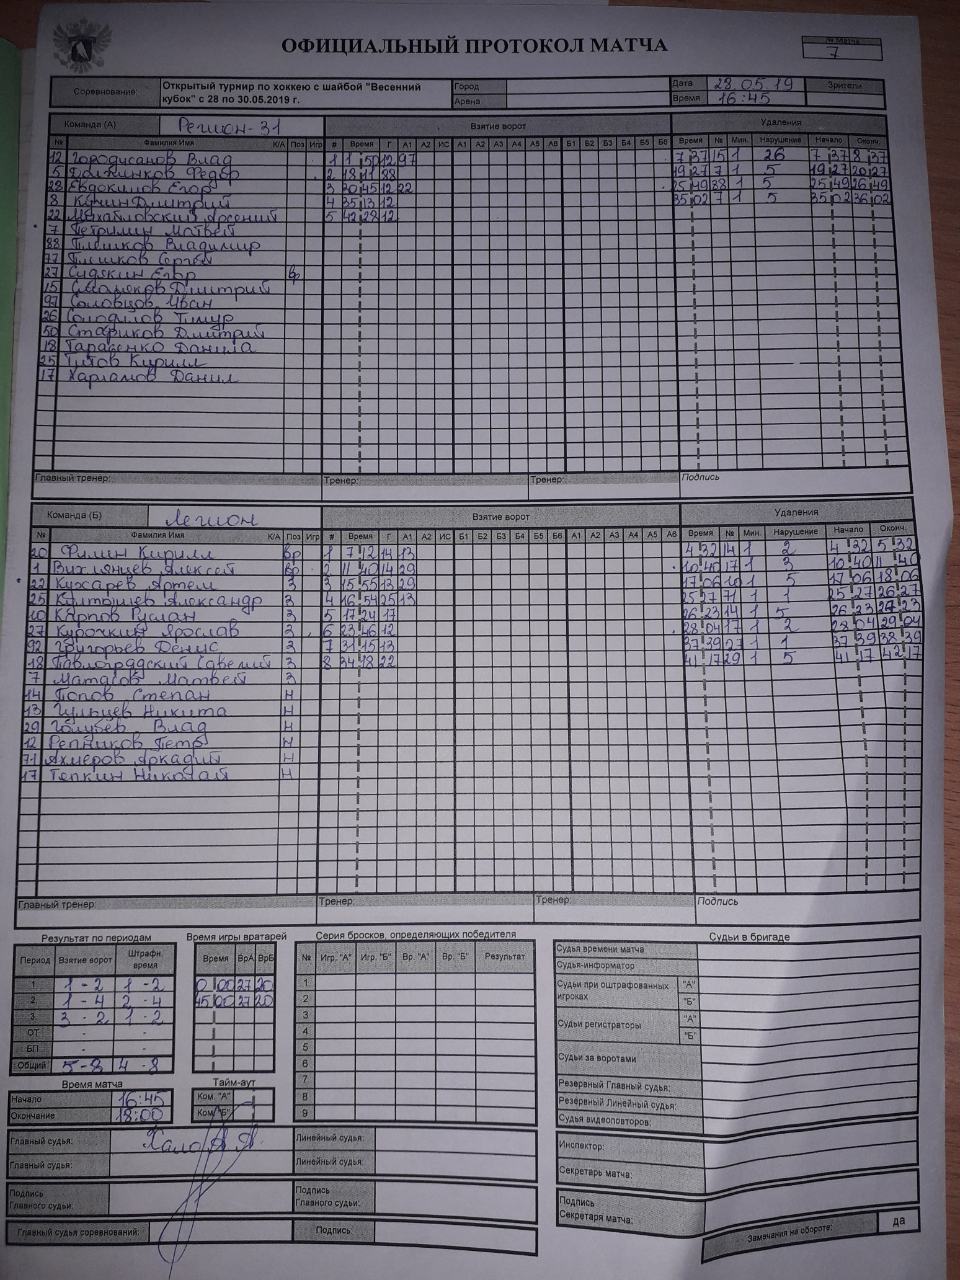 ОФИЦИАЛЬНЫЙ ПРОТОКОЛ МАТЧА
№ Матча
7
Соревнование: Открытый турнир по хоккею с шайбой "Весенний кубок" с 28 по 30.05.2019 г. Город Арена Дата 28.05.19 Время 16:45 Зрители
Команда (А) Регион-31 Взятие ворот Удаления
№ Фамилия Имя К/А Поз Игр # Время Г А1 А2 ИС А1 А2 А3 А4 А5 А6 Б1 Б2 Б3 Б4 Б5 Б6 Время № Мин. Нарушение Начало Оконч.
12 Городисанов Влад 1 1 50 12 97 7 37 15 1 26 7 37 8 37
5 Федор 2 18 11 88 19 27 7 1 5 19 27 20 27
28 Евдокимов Егор 3 30 45 12 22 25 49 88 1 5 25 49 26 49
8 Дмитрий 4 35 13 12 35 02 7 1 5 35 02 36 02
22 Михайловский Арсений 5 42 28 12
7 Матвей
88 Плешков Владимир
77 Плешков Сергей
27 Сидякин Егор Вр
15 Дмитрий
97 Соловцов Иван
26 Солодилов Тимур
50 Стариков Дмитрий
18 Тарасенко Данила
25 Титов Кирилл
17 Харламов Данил
Главный тренер: Тренер: Тренер: Подпись
Команда (Б) Легион Взятие ворот Удаления
№ Фамилия Имя К/А Поз Игр # Время Г А1 А2 ИС Б1 Б2 Б3 Б4 Б5 Б6 А1 А2 А3 А4 А5 А6 Время № Мин. Нарушение Начало Оконч.
20 Филин Кирилл Вр 1 7 12 14 13 4 32 14 1 2 4 32 5 32
1 Вихлянцев Алексей Вр 2 11 40 14 29 10 40 17 1 3 10 40 11 40
22 Кухарев Артем З 3 15 55 13 29 17 06 10 1 5 17 06 18 06
25 Колтошев Александр З 4 16 54 25 13 25 27 71 1 1 25 27 26 27
10 Карпов Руслан З 5 17 24 17 26 23 14 1 5 26 23 27 23
27 Курочкин Ярослав З 6 23 46 12 28 04 17 1 2 28 04 29 04
92 Григорьев Денис З 7 31 15 13 37 39 27 1 1 37 39 38 39
18 Павлоградский Савелий З 8 34 18 22 41 17 29 1 5 41 17 42 17
7 Матвей З
14 Попов Степан Н
13 Гульцев Никита Н
29 Голубев Влад Н
12 Репников Петр Н
71 Ахмеров Аркадий Н
17 Тепкин Николай Н
Главный тренер: Тренер: Тренер: Подпись
Результат по периодам Время игры вратарей Серия бросков, определяющих победителя Судьи в бригаде
Период Взятие ворот Штрафн. время Время ВрА ВрБ № Игр. "А" Игр. "Б" Вр. "А" Вр. "Б" Результат
1 1 - 2 1 - 2 0 00 27 20 1
2 1 - 4 2 - 4 45 00 27 20 2
3 3 - 2 1 - 2 3
ОТ - - 4
БП - - 5
Общий 5-8 4 - 8 6
7
8
9
Судья времени матча
Судья-информатор
Судьи при оштрафованных игроках "А" "Б"
Судьи регистраторы "А" "Б"
Судьи за воротами
Резервный Главный судья:
Резервный Линейный судья:
Судья видеоповторов:
Время матча Тайм-аут
Начало 16:45 Ком. "А"
Окончание 18:00 Ком. "Б"
Главный судья: Линейный судья: Инспектор:
Главный судья: Линейный судья: Секретарь матча:
Подпись Главного судьи: Подпись Главного судьи: Подпись Секретаря матча:
Главный судья соревнований: Подпись: Замечания на обороте: да